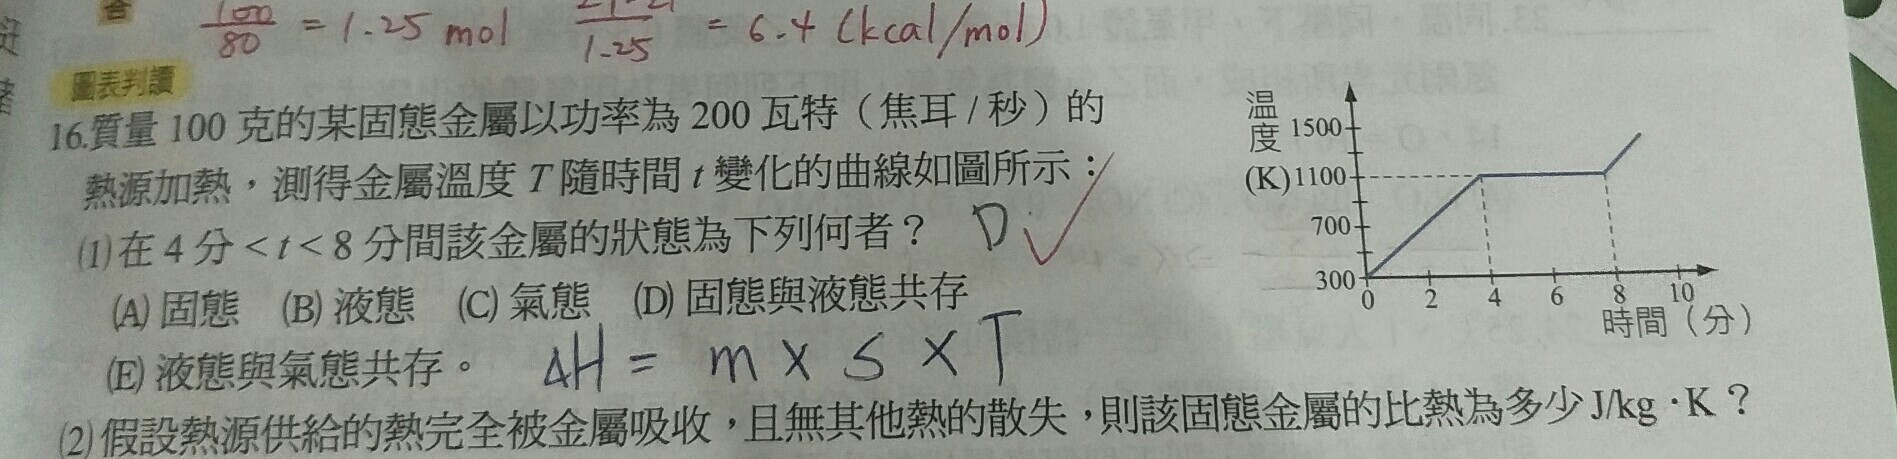 答
100/80 = 1.25 mol /1.25 = 6.4 (kcal/mol)
圖表判讀
16.質量 100 克的某固態金屬以功率為 200 瓦特（焦耳/秒）的
熱源加熱，測得金屬溫度 T 隨時間 t 變化的曲線如圖所示：
(1)在 4 分 < t < 8 分間該金屬的狀態為下列何者？ D
(A) 固態 (B) 液態 (C) 氣態 (D) 固態與液態共存
(E) 液態與氣態共存。 ΔH = m × S × T
(2)假設熱源供給的熱完全被金屬吸收，且無其他熱的散失，則該固態金屬的比熱為多少 J/kg·K？
溫度(K)
1500
1100
700
300
0 2 4 6 8 10
時間（分）